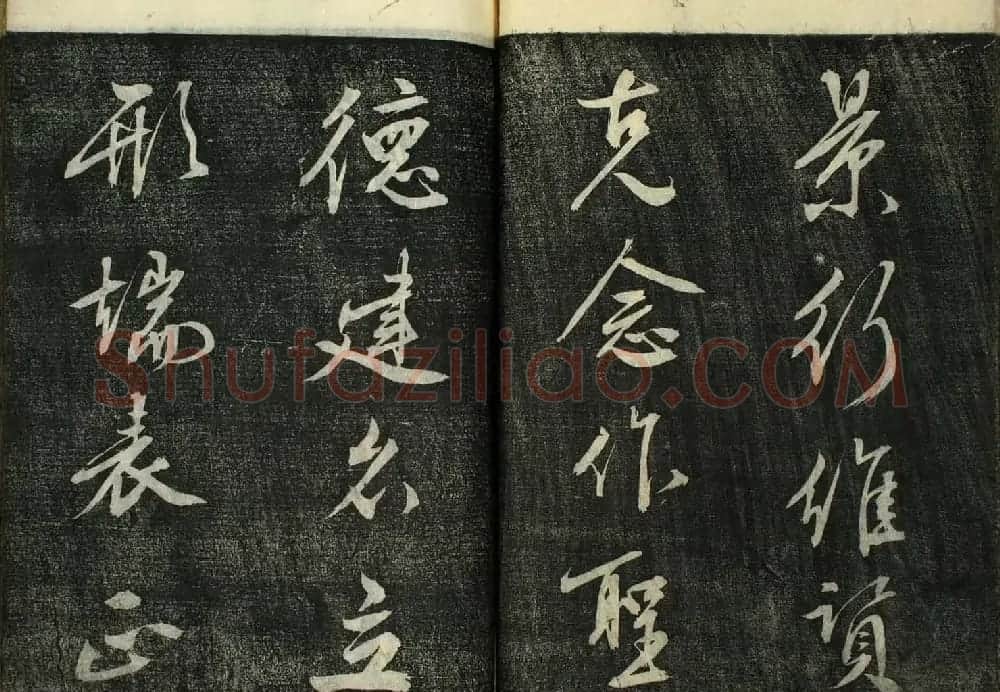 景行維賢
克念作聖
德建名立
形端表正
Shufaziliao.COM